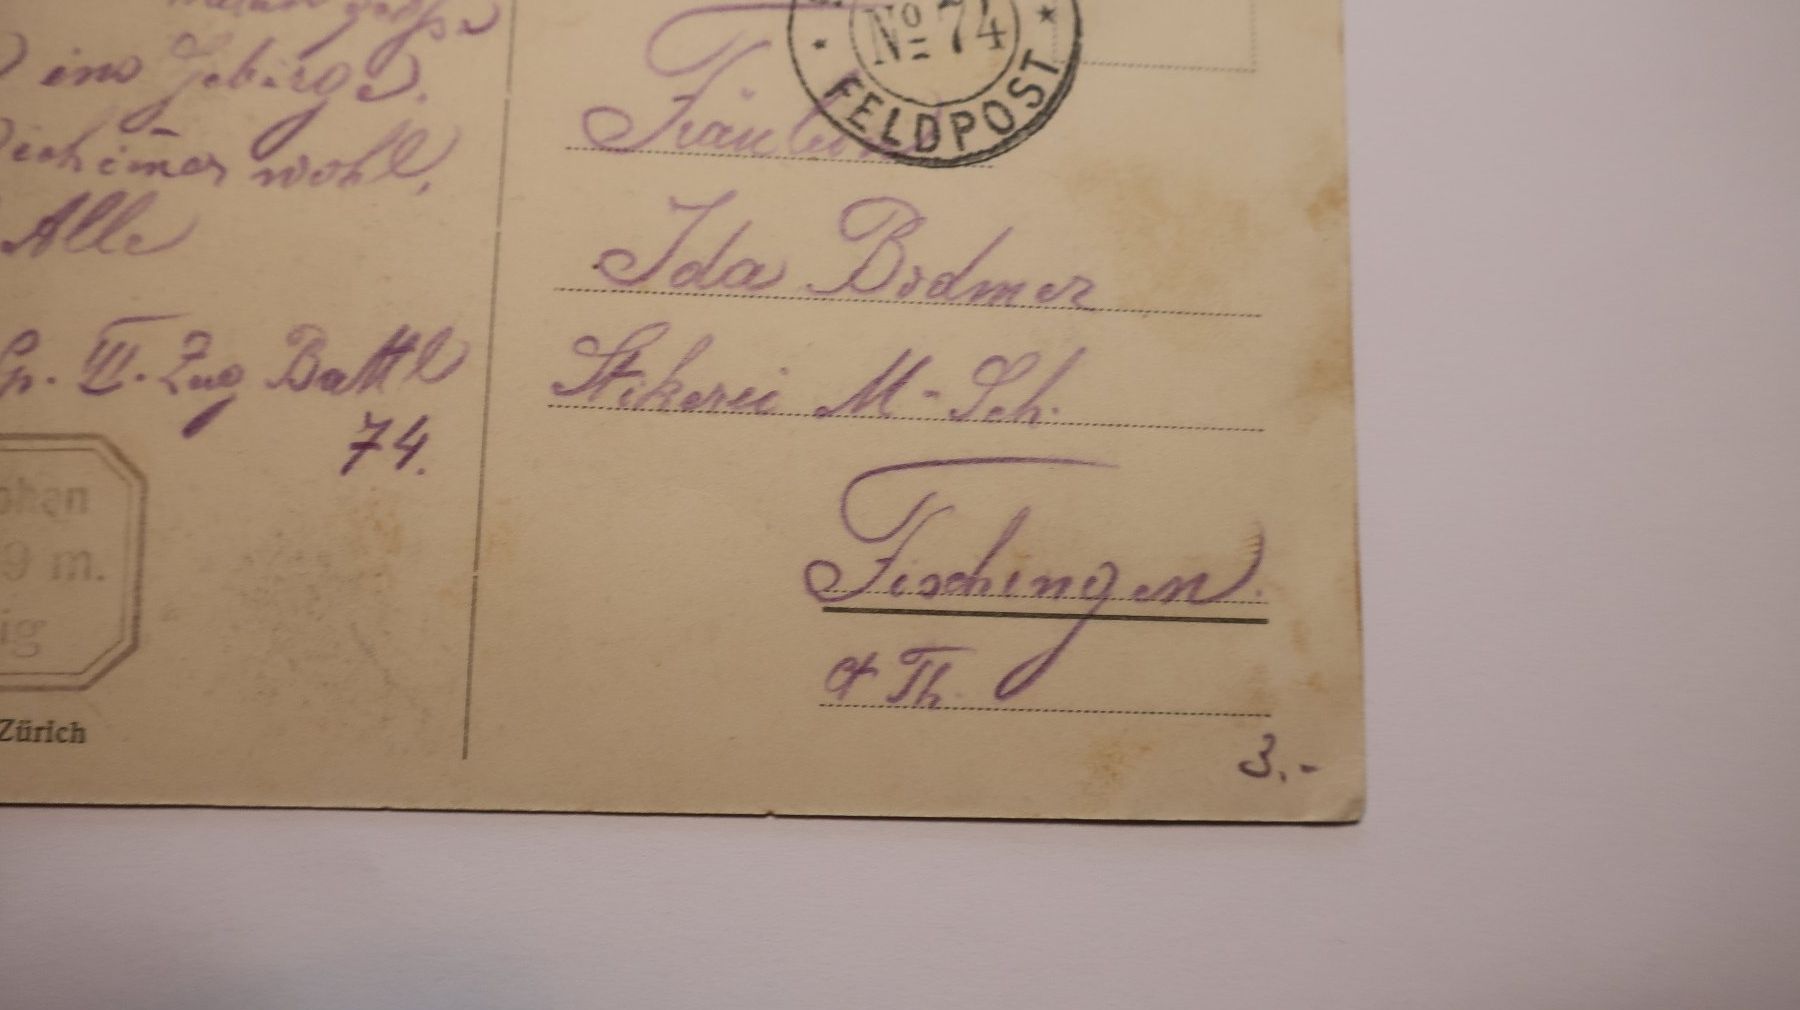 ins Gebirge.
wohl,
Alle
Gr. III. Zug Battl
74.
9 m.
ig
Zürich
No 74
FELDPOST
Fräulein
Ida Bodmer
Stikerei M-Sch.
Fischingen.
Ct Th.
3.-